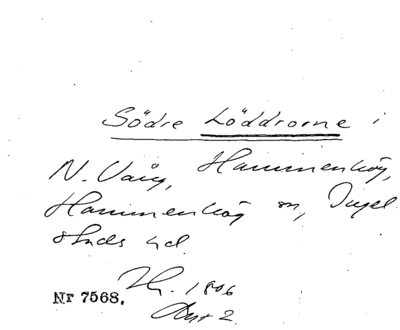 Södre Löddrorne i
N. Vång, Hammenhög,
Hammenhög sn, Ingel-
stads hd.
Nr 7568.
1806
Akt 2